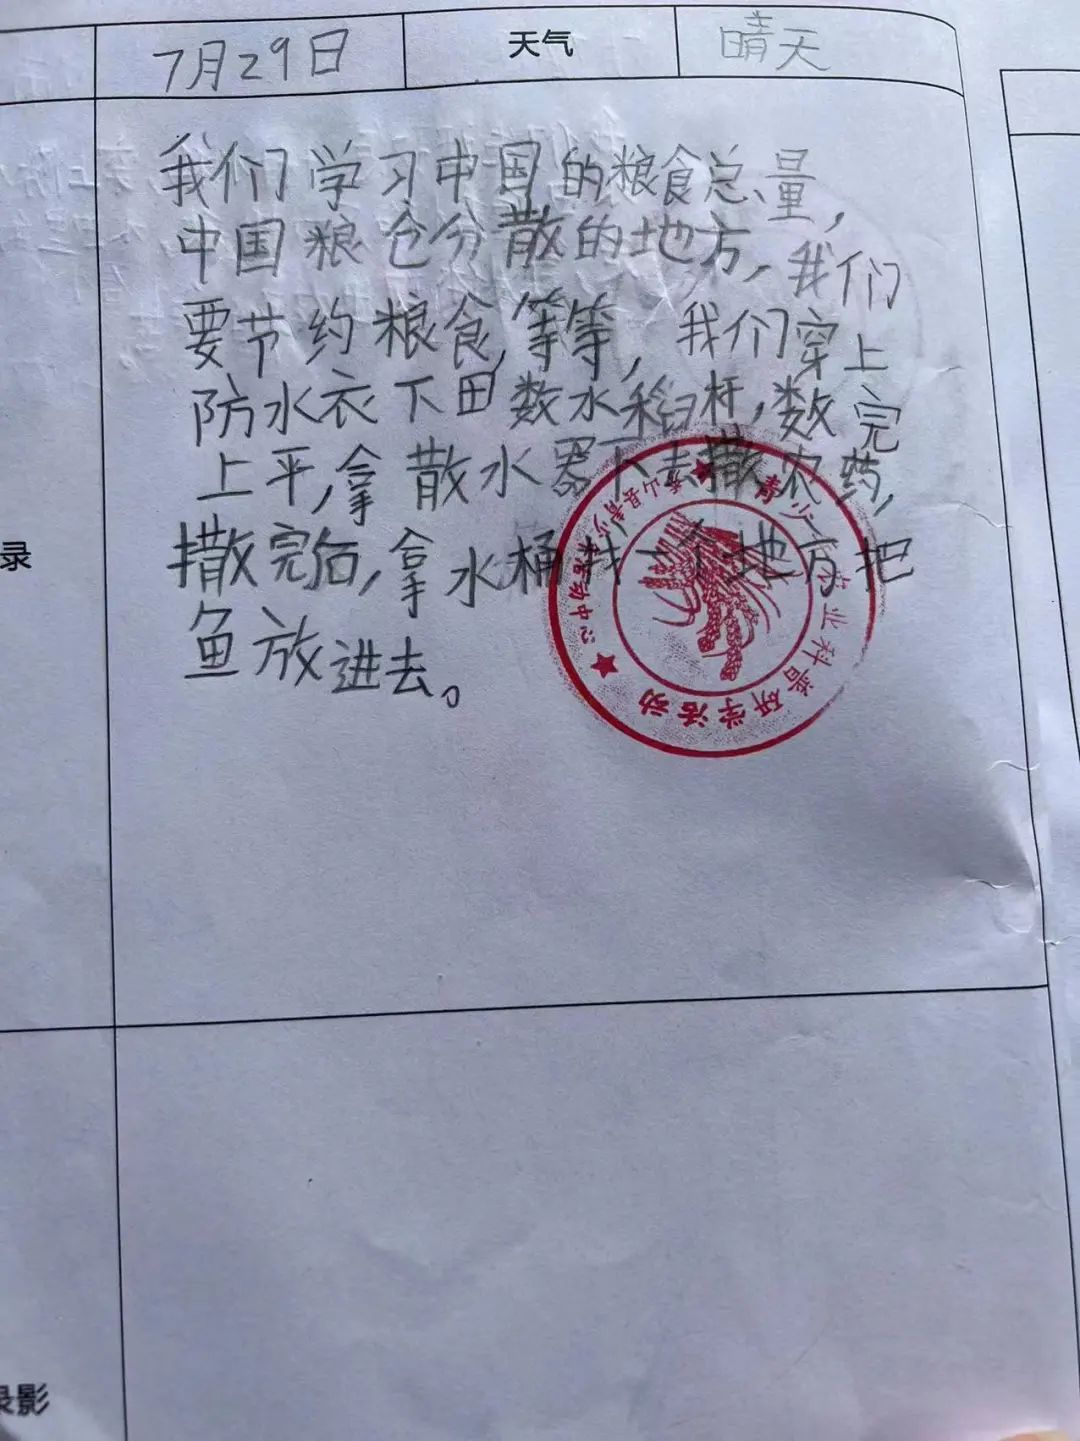 7月29日 天气 晴天
我们学习中国的粮食总量,
中国粮仓分散的地方,我们
要节约粮食,等等,我们穿上
防水衣下田数水稻杆,数完
上平,拿散水器下去撒农药,
撒完后,拿水桶找一个地方把
鱼放进去。
录
录影
青少年农业科普研学活动
县青少年活动中心